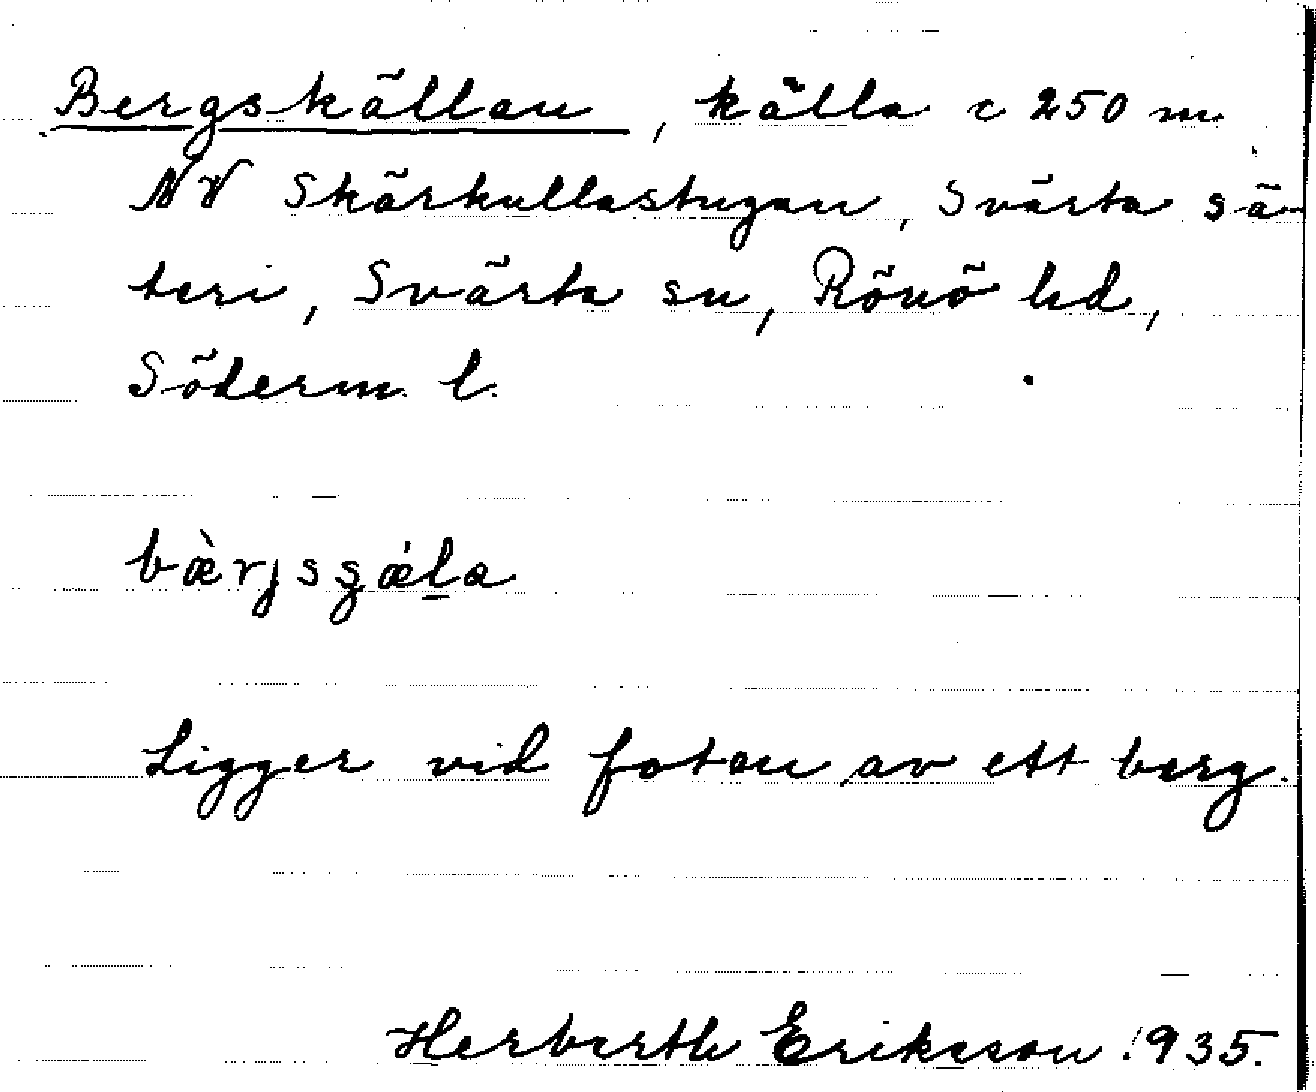 Bergskällan, källa c 250 m
NV Skärkullastugan, Svärta sä-
teri, Svärta sn, Rönö hd,
Söderm. l.
bæ̀rjsgǽl̲a
Ligger vid foten av ett berg.
Herberth Eriksson 1935.